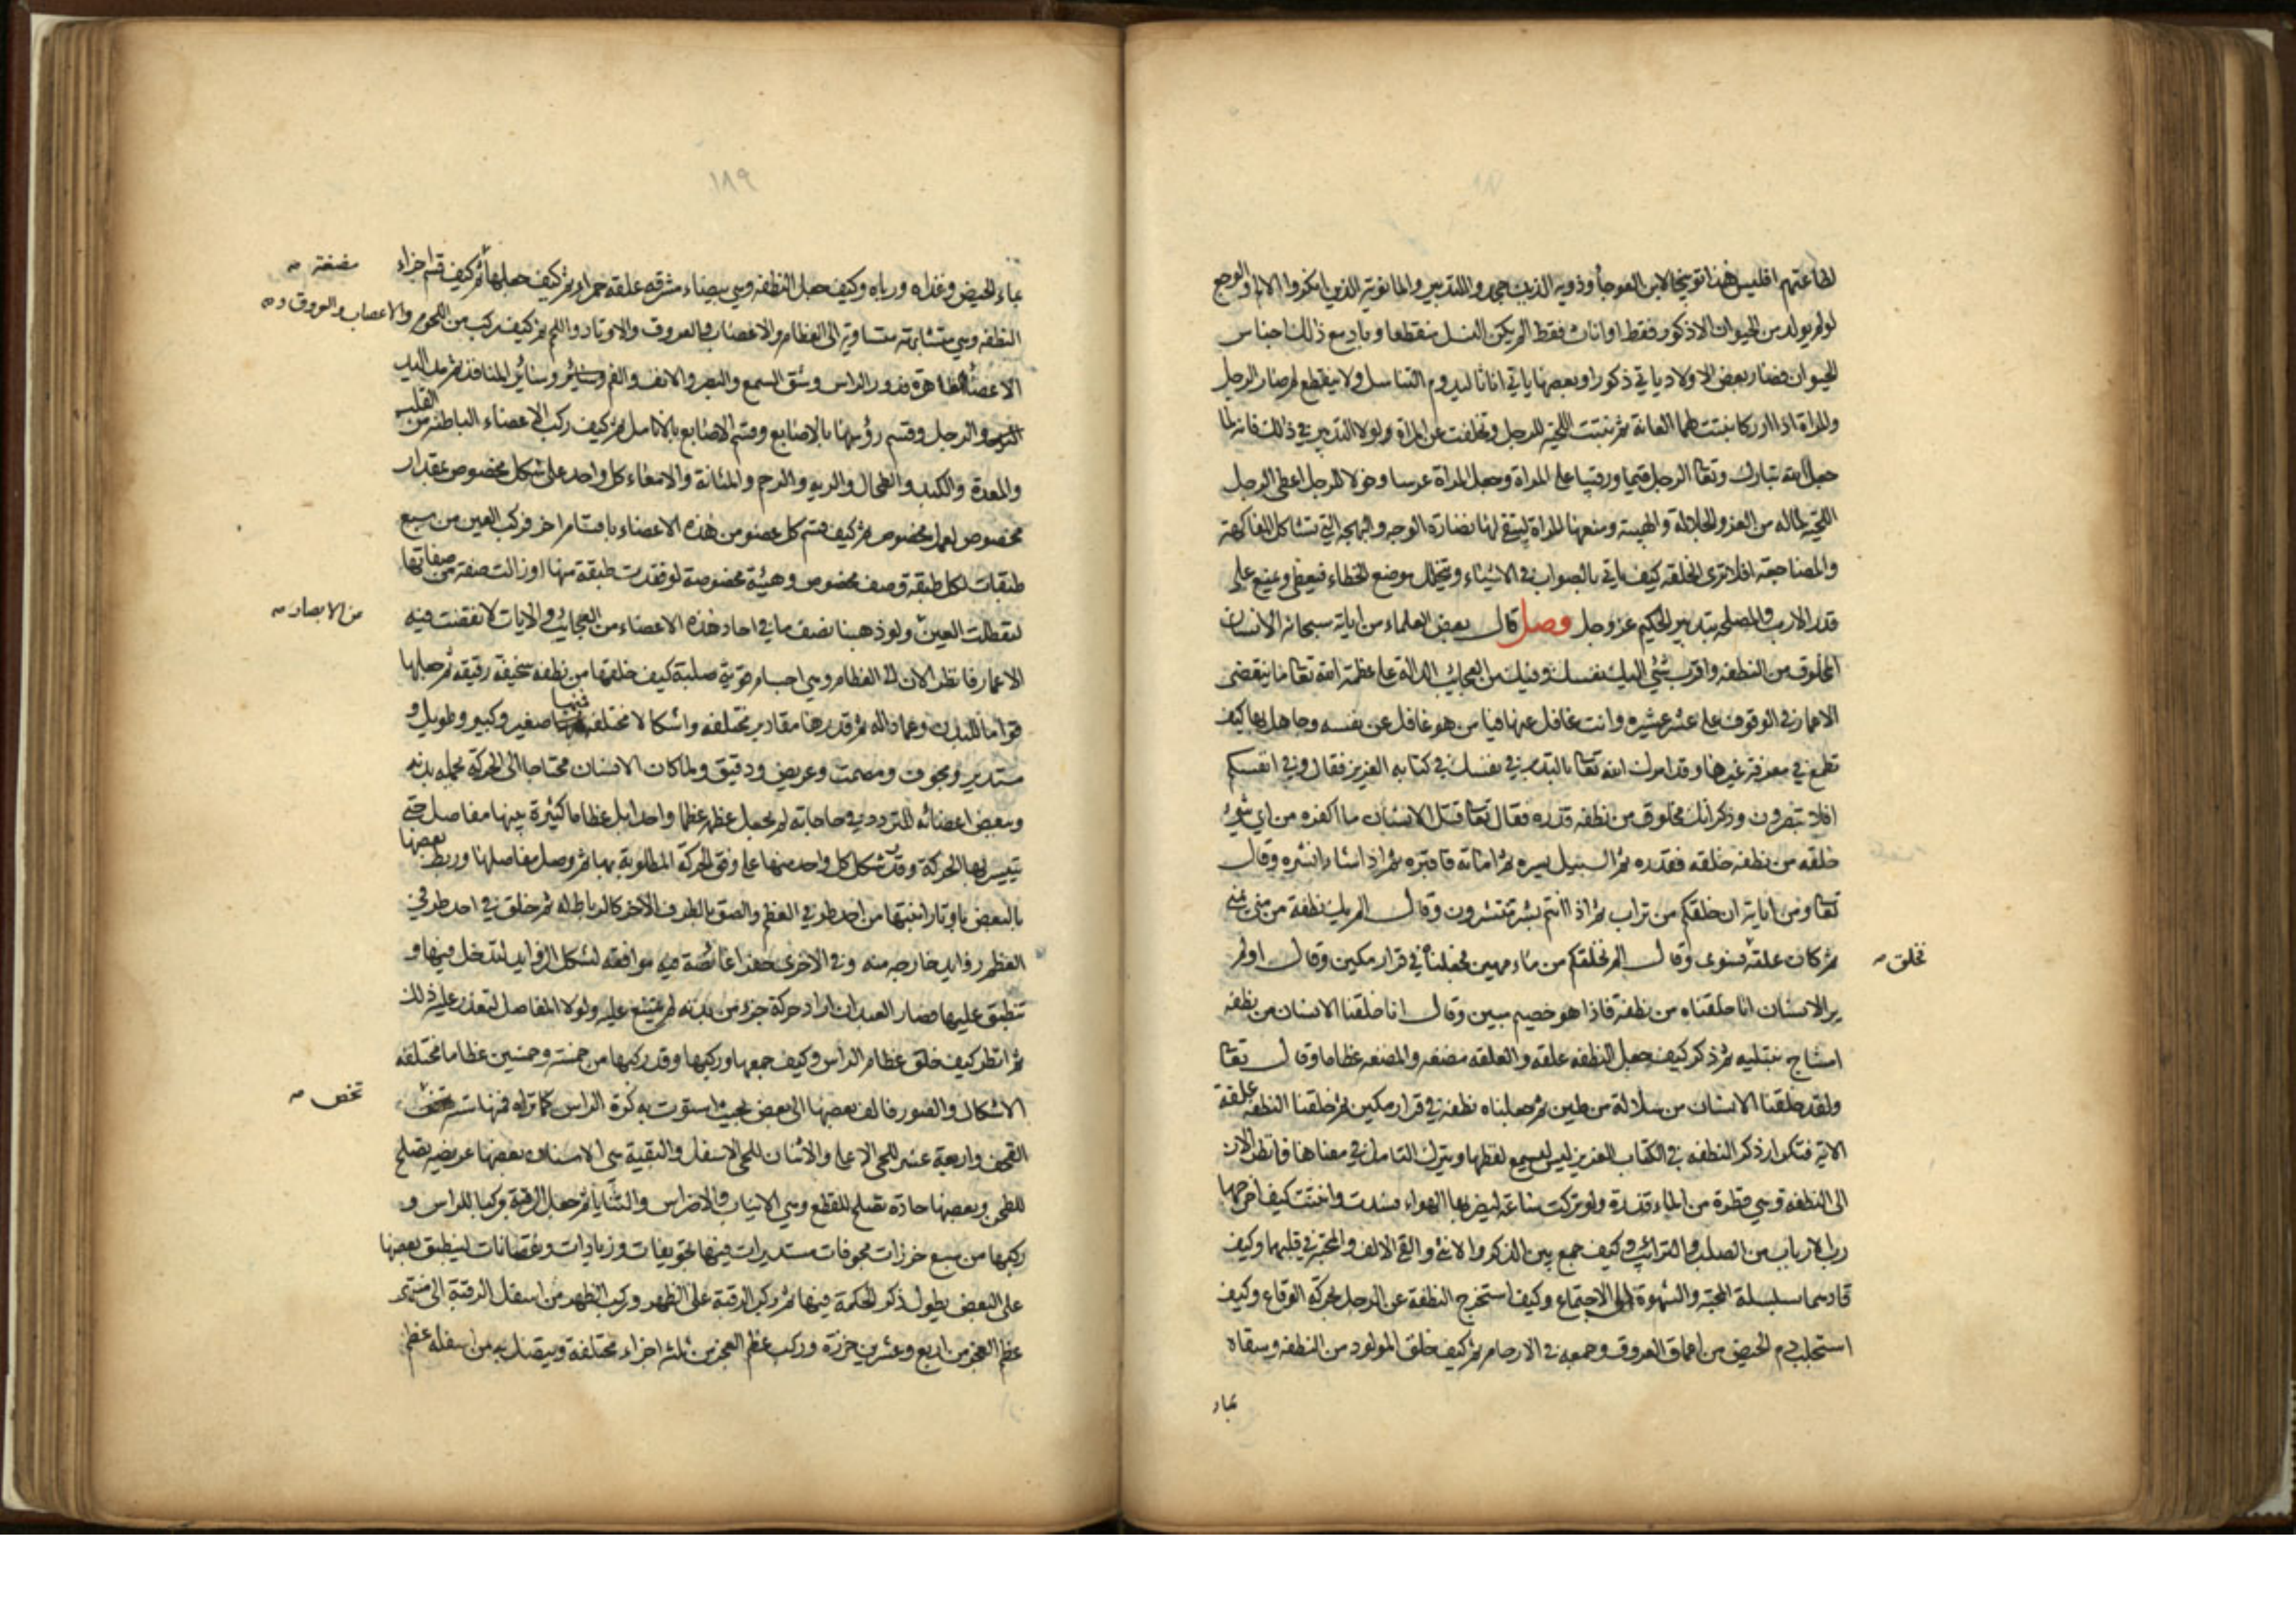 لطاعتهم افليس هذا توبيخا لابن العوجا وذويه الذين جحدوا التدبير والمانوية الذين انكروا الالم والوجع
لو لم يولد من الحيوان الا ذكور فقط او اناث فقط الم يكن النسل منقطعا وباد مع ذلك اجناس
الحيوان فصار بعض الاولاد ياتي ذكورا وبعضها ياتي اناثا ليدوم التناسل ولا ينقطع لم صار الرجل
والمراة اذا ادركا نبتت لهما العانة ثم نبتت اللحية للرجل وتخلفت عن المراة ولولا التدبير في ذلك فانه لما
جعل الله تبارك وتعا الرجل قيما ورقيبا على المراة وجعل المراة عرسا وخولا للرجل اعطى الرجل
اللحية لما له من العز والجلالة والهيبة ومنعها المراة ليبقى لها نضارة الوجه والبهجة التي تشاكل المفاكهة
والمضاجعة افلا ترى الخلقة كيف ياتي بالصواب في الاشياء وتتخلل موضع الخطاء فيعطى ويمنع على
قدر الارب والمصلحة بتدبير الحكيم عز وجل فصل قال بعض العلماء من اياته سبحانه الانسان
المخلوق من النطفه واقرب شئ اليك نفسك وفيك من العجايب الدالة على عظمة الله تعا ما ينقضى
الاعمار في الوقوف على عشر عشيره وانت غافل عنها فيا من هو غافل عن نفسه وجاهل بها كيف
تطمع في معرفة غيرها وقد امرك الله تعا بالتدبر في نفسك في كتابه العزيز فقال وفي انفسكم
افلا تبصرون وذكر انك مخلوق من نطفه قذره فقال تعا قتل الانسان ما اكفره من اي شئ
خلقه من نطفه خلقه فقدره ثم السبيل يسره ثم اماته فاقبره ثم اذا شاء انشره وقال
تعا ومن اياته ان خلقكم من تراب ثم اذا انتم بشر تنتشرون وقال الم يك نطفة من منى يمنى
ثم كان علقة فسوى وقال الم نخلقكم من ماء مهين فجعلناه في قرار مكين وقال اولم
نخلق
ير الانسان انا خلقناه من نطفة فاذا هو خصيم مبين وقال انا خلقنا الانسان من نطفه
امشاج نبتليه ثم ذكر كيف جعل النطفه علقه والعلقه مضغه والمضغه عظاما وقال تعا
ولقد خلقنا الانسان من سلالة من طين ثم جعلناه نطفه في قرار مكين ثم خلقنا النطفه علقة
الاية فتكرار ذكر النطفه في الكتاب العزيز ليس ليسمع لفظها ويترك التامل في معناها فانظر الان
الى النطفه وهي قطرة من الماء قذرة ولو تركت ساعة ليضربها الهواء فسدت وانتنت كيف اخرجها
رب الارباب من الصلب والترائب وكيف جمع بين الذكر والانثى والقى الالف والمحبة في قلبهما وكيف
قادهما بسلسلة المحبة والشهوة الى الاجتماع وكيف استخرج النطفة عن الرجل بحركة الوقاع وكيف
استجلب دم الحيض من اعماق العروق وجمعه في الارحام ثم كيف خلق المولود من النطفه وسقاه
بماء
١٨٩
بماء الحيض وغذاه ورباه وكيف جعل النطفه وهي بيضاء مشرقه علقه حمراء ثم كيف جعلها ثم كيف قسم اجزاء
مضغة
النطفه وهي متشابهة متساوية الى العظام والاعصاب والعروق والاوتاد واللحم ثم كيف ركب من اللحوم والاعصاب والعروق
الاعضاء الظاهرة فدور الراس وشق السمع والبصر والانف والفم وسائر المنافذ ثم مد اليد
والرجل وقسم رؤسها بالاصابع وقسم الاصابع بالانامل ثم كيف ركب الاعضاء الباطنه من القلب
والمعدة والكبد والطحال والريه والرحم والمثانة والامعاء كل واحد على شكل مخصوص بمقدار
مخصوص لعمل مخصوص ثم كيف قسم كل عضو من هذه الاعضاء باقسام اخر فركب العين من سبع
طبقات لكل طبقة وصف مخصوص وهيئة مخصوصة لو فقدت طبقة منها او زالت صفة من صفاتها
لتعطلت العين ولو ذهبنا نصف ما في احاد هذه الاعضاء من العجائب والايات لانقضت فيه
من الابصار
الاعمار فانظر الان الى العظام وهي اجسام قوية صلبة كيف خلقها من نطفه سخيفة رقيقه ثم جعلها
قواما للبدن وعمادا له ثم قدرها مقادير مختلفه واشكالا مختلفه فمنها صغير وكبير وطويل و
مستدير ومجوف ومصمت وعريض ودقيق ولما كان الانسان محتاجا الى الحركة بجمله بدنه
وببعض اعضائه للتردد في حاجاته لم يجعل عظمه عظما واحدا بل عظاما كثيرة بينها مفاصل حتى
تتيسر بها الحركة وقدر شكل كل واحد منها على وفق الحركة المطلوبة بها ثم وصل مفاصلها وربط بعضها
بالبعض باوتار انبتها من احد طرفي العظم والصق بالطرف الاخر كالرباط له ثم خلق في احد طرفي
العظم زوايد خارجه منه وفي الاخرى حفرا غائصة فيه موافقه لشكل الزوايد لتدخل فيها و
تنطبق عليها فصار العبد ان اراد حركة جزء من بدنه لم يمتنع عليه ولولا المفاصل لتعذر عليه ذلك
ثم انظر كيف خلق عظام الراس وكيف جمعها وركبها وقد ركبها من خمسة وخمسين عظاما مختلفه
الاشكال والصور فالف بعضها الى بعض بحيث استوت به كرة الراس كما تراه فمنها ستة تخص
تخص
القحف واربعة عشر للحى الاعلى والاثنان للحى الاسفل والبقية هي الاسنان بعضها عريضه تصلح
للطحن وبعضها حادة تصلح للقطع وهي الانياب والاضراس والثنايا ثم جعل الرقبة مركبا للراس و
ركبها من سبع خرزات مجوفات مستديرات فيها تجويفات وزيادات ونقصانات لينطبق بعضها
على البعض يطول ذكر الحكمة فيها ثم ركب الرقبة على الظهر وركب الظهر من اسفل الرقبة الى منتهى
عظم العجز من اربع وعشرين خرزة وركب عظم العجز من ثلثه اجزاء مختلفة ويتصل به من اسفله عظم